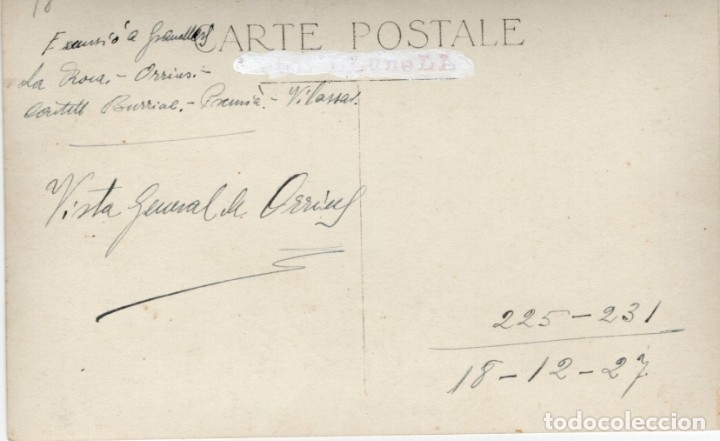 18
Excursió a Granollers
CARTE POSTALE
La Roca.- Orrius.-
Castell Burriac.- Premià.- Vilassar.
Vista General de Orrius
225-231
18-12-27
todocoleccion